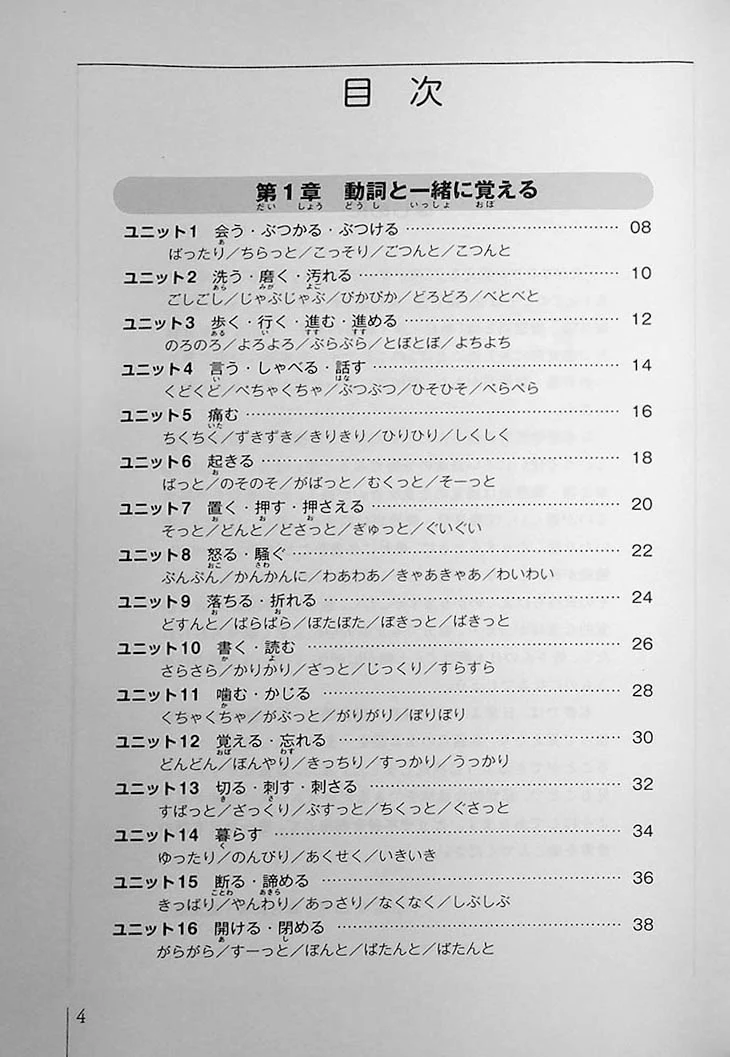 目 次
第1章 動詞と一緒に覚える
だい しょう どうし いっしょ おぼ
ユニット1 会う・ぶつかる・ぶつける 08
あ
ばったり／ちらっと／こっそり／ごつんと／こつんと
ユニット2 洗う・磨く・汚れる 10
あら みが よご
ごしごし／じゃぶじゃぶ／ぴかぴか／どろどろ／べとべと
ユニット3 歩く・行く・進む・進める 12
ある い すす すす
のろのろ／よろよろ／ぶらぶら／とぼとぼ／よちよち
ユニット4 言う・しゃべる・話す 14
い はな
くどくど／ぺちゃくちゃ／ぶつぶつ／ひそひそ／ぺらぺら
ユニット5 痛む 16
いた
ちくちく／ずきずき／きりきり／ひりひり／しくしく
ユニット6 起きる 18
お
ぱっと／のそのそ／がばっと／むくっと／そーっと
ユニット7 置く・押す・押さえる 20
お お お
そっと／どんと／どさっと／ぎゅっと／ぐいぐい
ユニット8 怒る・騒ぐ 22
おこ さわ
ぷんぷん／かんかんに／わあわあ／きゃあきゃあ／わいわい
ユニット9 落ちる・折れる 24
お お
どすんと／ぱらぱら／ぽたぽた／ぽきっと／ばきっと
ユニット10 書く・読む 26
か よ
さらさら／かりかり／ざっと／じっくり／すらすら
ユニット11 噛む・かじる 28
か
くちゃくちゃ／がぶっと／がりがり／ぽりぽり
ユニット12 覚える・忘れる 30
おぼ わす
どんどん／ぼんやり／きっちり／すっかり／うっかり
ユニット13 切る・刺す・刺さる 32
き さ
すぱっと／ざっくり／ぶすっと／ちくっと／ぐさっと
ユニット14 暮らす 34
く
ゆったり／のんびり／あくせく／いきいき
ユニット15 断る・諦める 36
ことわ あきら
きっぱり／やんわり／あっさり／なくなく／しぶしぶ
ユニット16 開ける・閉める 38
あ し
がらがら／すーっと／ぽんと／ぱたんと／ばたんと
4